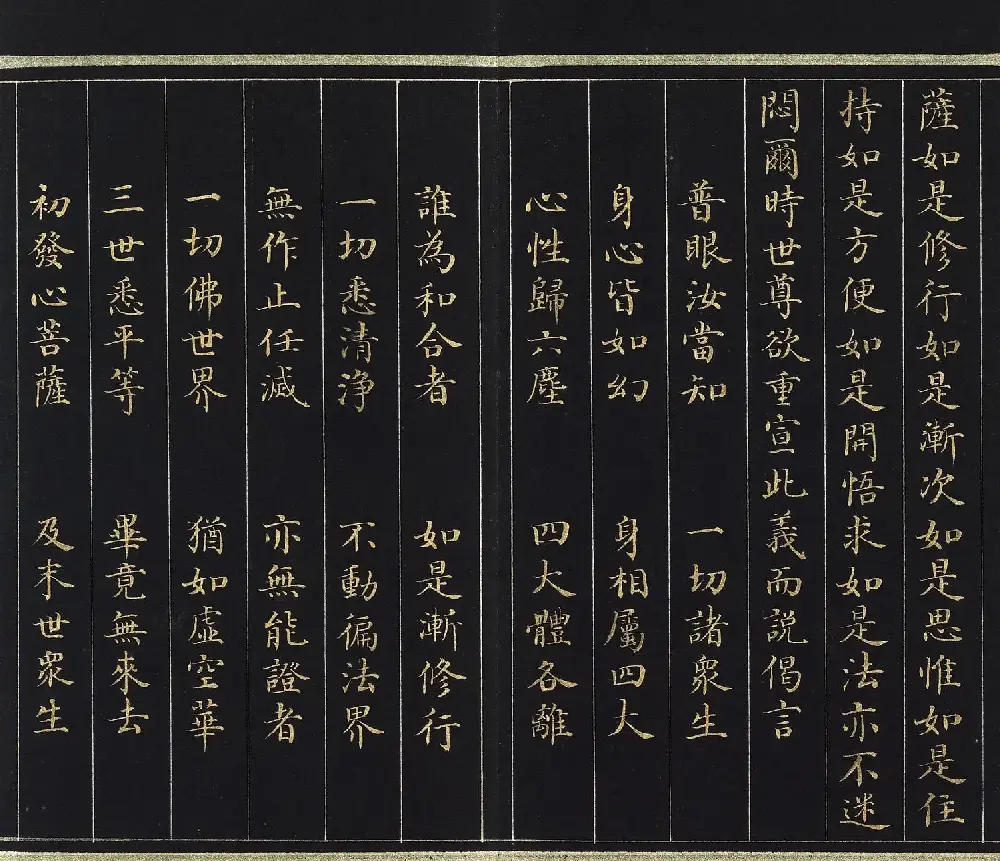 薩如是修行如是漸次如是思惟如是住
持如是方便如是開悟求如是法亦不迷
悶爾時世尊欲重宣此義而説偈言
普眼汝當知　一切諸衆生
身心皆如幻　身相屬四大
心性歸六塵　四大體各離
誰為和合者　如是漸修行
一切悉清浄　不動徧法界
無作止任滅　亦無能證者
一切佛世界　猶如虛空華
三世悉平等　畢竟無來去
初發心菩薩　及末世衆生